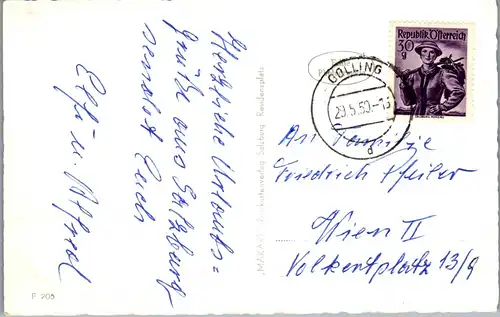 Herzliche Urlaubs=
grüße aus Salzburg
sendet Euch
Elfi u. Alfred
F 205
"MAKART" Salzburg Residenzplatz
Republik Österreich
30
g
GOLLING
An Familie
Friedrich Pfeiler
Wien II
Volkertplatz 13/9